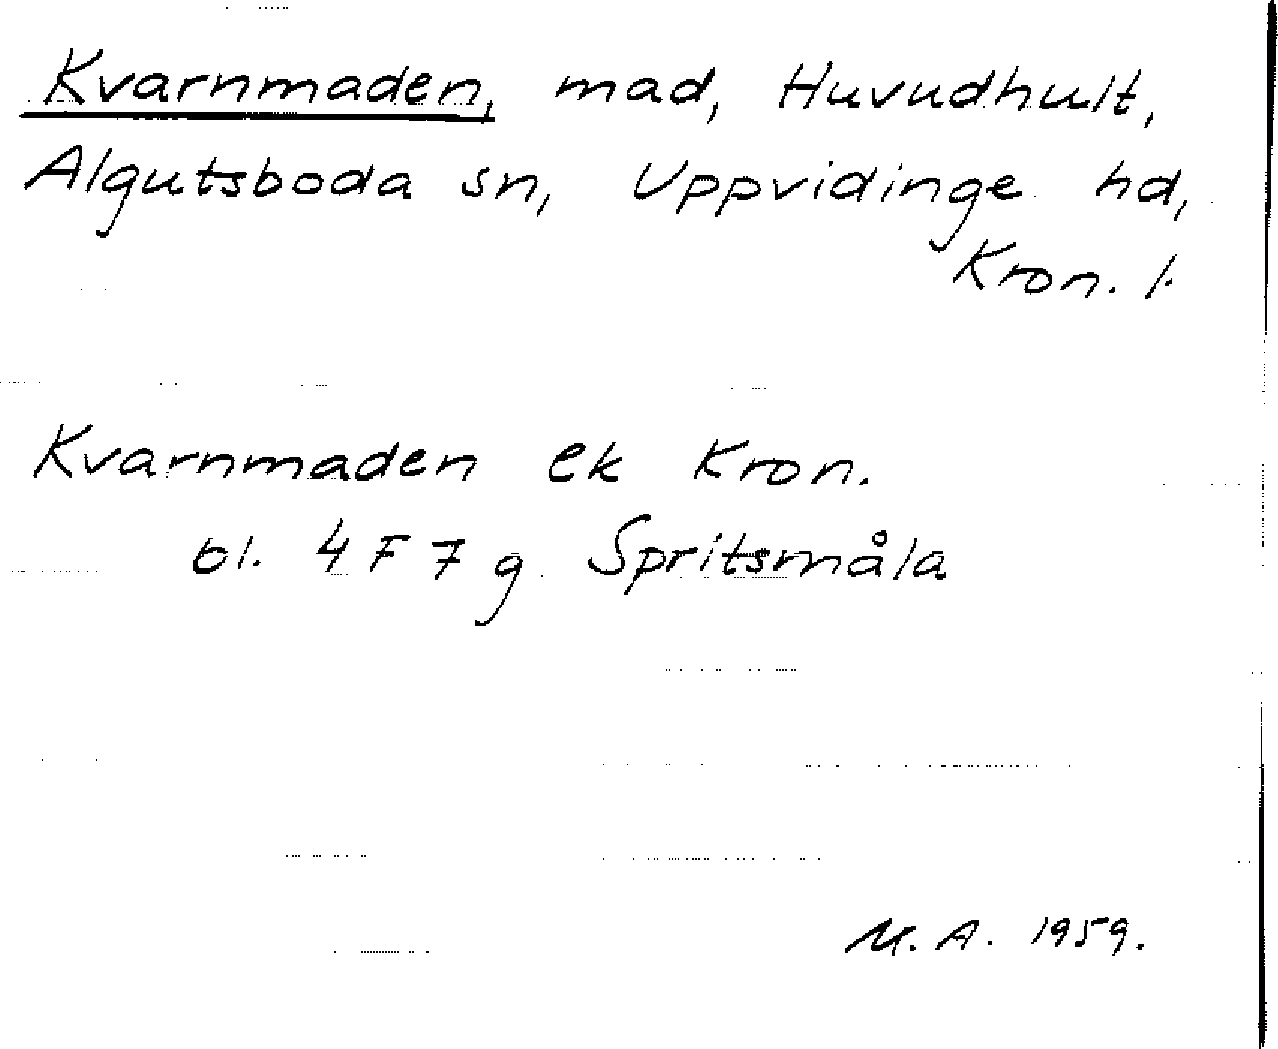 Kvarnmaden, mad, Huvudhult,
Algutsboda sn, Uppvidinge hd,
Kron. l.
Kvarnmaden ek Kron.
bl. 4 F 7 g Spritsmåla
M. A. 1959.